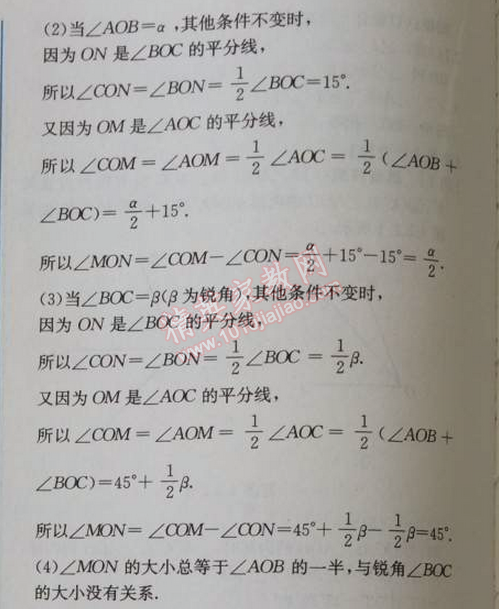 (2)当∠AOB=α,其他条件不变时,
因为 ON 是∠BOC 的平分线,
所以∠CON=∠BON=$\frac{1}{2}$∠BOC=15°.
又因为 OM 是∠AOC 的平分线,
所以∠COM=∠AOM=$\frac{1}{2}$∠AOC=$\frac{1}{2}$(∠AOB+
∠BOC)=$\frac{α}{2}$+15°.
所以∠MON=∠COM-∠CON=$\frac{α}{2}$+15°-15°=$\frac{α}{2}$.
(3)当∠BOC=β(β为锐角),其他条件不变时,
因为 ON 是∠BOC 的平分线,
所以∠CON=∠BON=$\frac{1}{2}$∠BOC=$\frac{1}{2}$β.
又因为 OM 是∠AOC 的平分线,
所以∠COM=∠AOM=$\frac{1}{2}$∠AOC=$\frac{1}{2}$(∠AOB+
∠BOC)=45°+$\frac{1}{2}$β.
所以∠MON=∠COM-∠CON=45°+$\frac{1}{2}$β-$\frac{1}{2}$β=45°.
(4)∠MON 的大小总等于∠AOB 的一半,与锐角∠BOC
的大小没有关系.
精英家教网
www.1010jiajiao.com